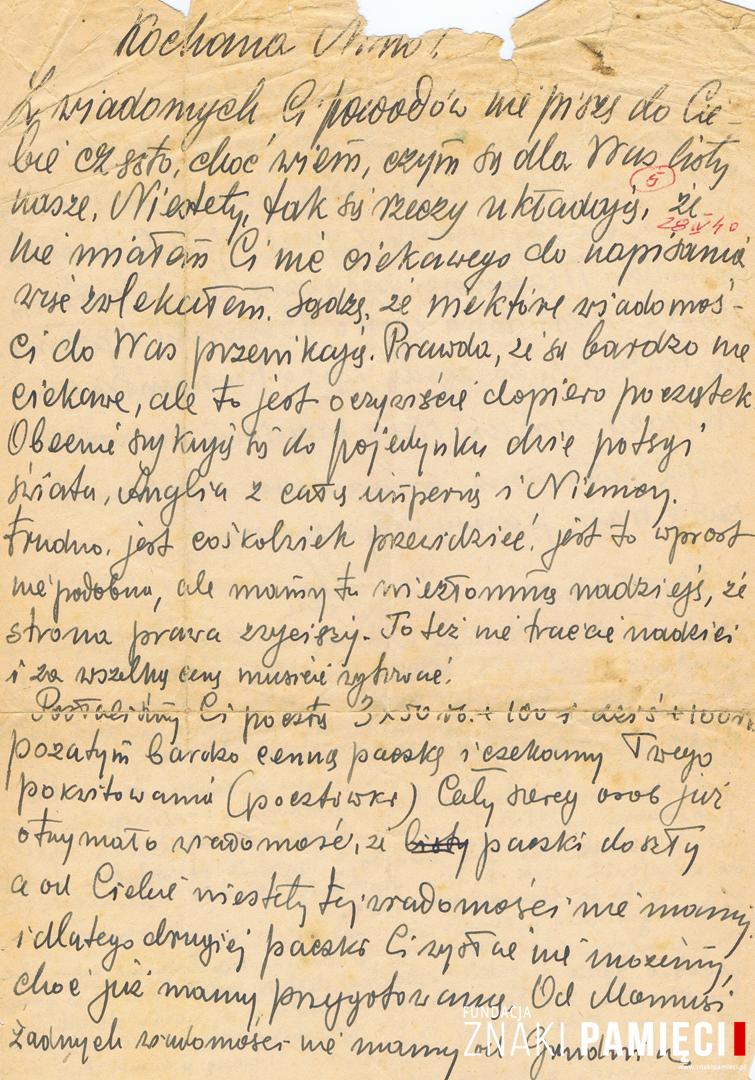 Kochana Nuno!
Z wiadomych Ci powodów nie piszę do Cie-
bie często, choć wiem, czym są dla Was listy
5
nasze. Niestety, tak się rzeczy układają, że
28 IV 40
nie miałem Ci nic ciekawego do napisania
więc zwlekałem. Sądzę, że niektóre wiadomoś-
ci do Was przenikają. Prawda, że są bardzo nie
ciekawe, ale to jest oczywiście dopiero początek
Obecnie szykują się do pojedynku dwie potęgi
świata, Anglia z całą imperią i Niemcy.
Trudno jest cośkolwiek przewidzieć, jest to wprost
niepodobna, ale mamy tu niezłomną nadzieję, że
strona prawa zwycięży. To też nie traćcie nadziei
i za wszelką cenę musicie wytrwać.
Posłaliśmy Ci pocztą 3 x 50 rb. + 100 i dziś + 100
pozatym bardzo cenną paczkę i czekamy Twego
pokwitowania (pocztówki) Cały szereg osob już
otrzymało wiadomość, że listy paczki doszły
a od Ciebie niestety tej wiadomości nie mamy
i dlatego drugiej paczki Ci wysłać nie możemy,
choć już mamy przygotowaną. Od Mamusi
żadnych wiadomości nie mamy od grudnia
FUNDACJA
ZNAKI PAMIĘCI
www.znakipamieci.pl